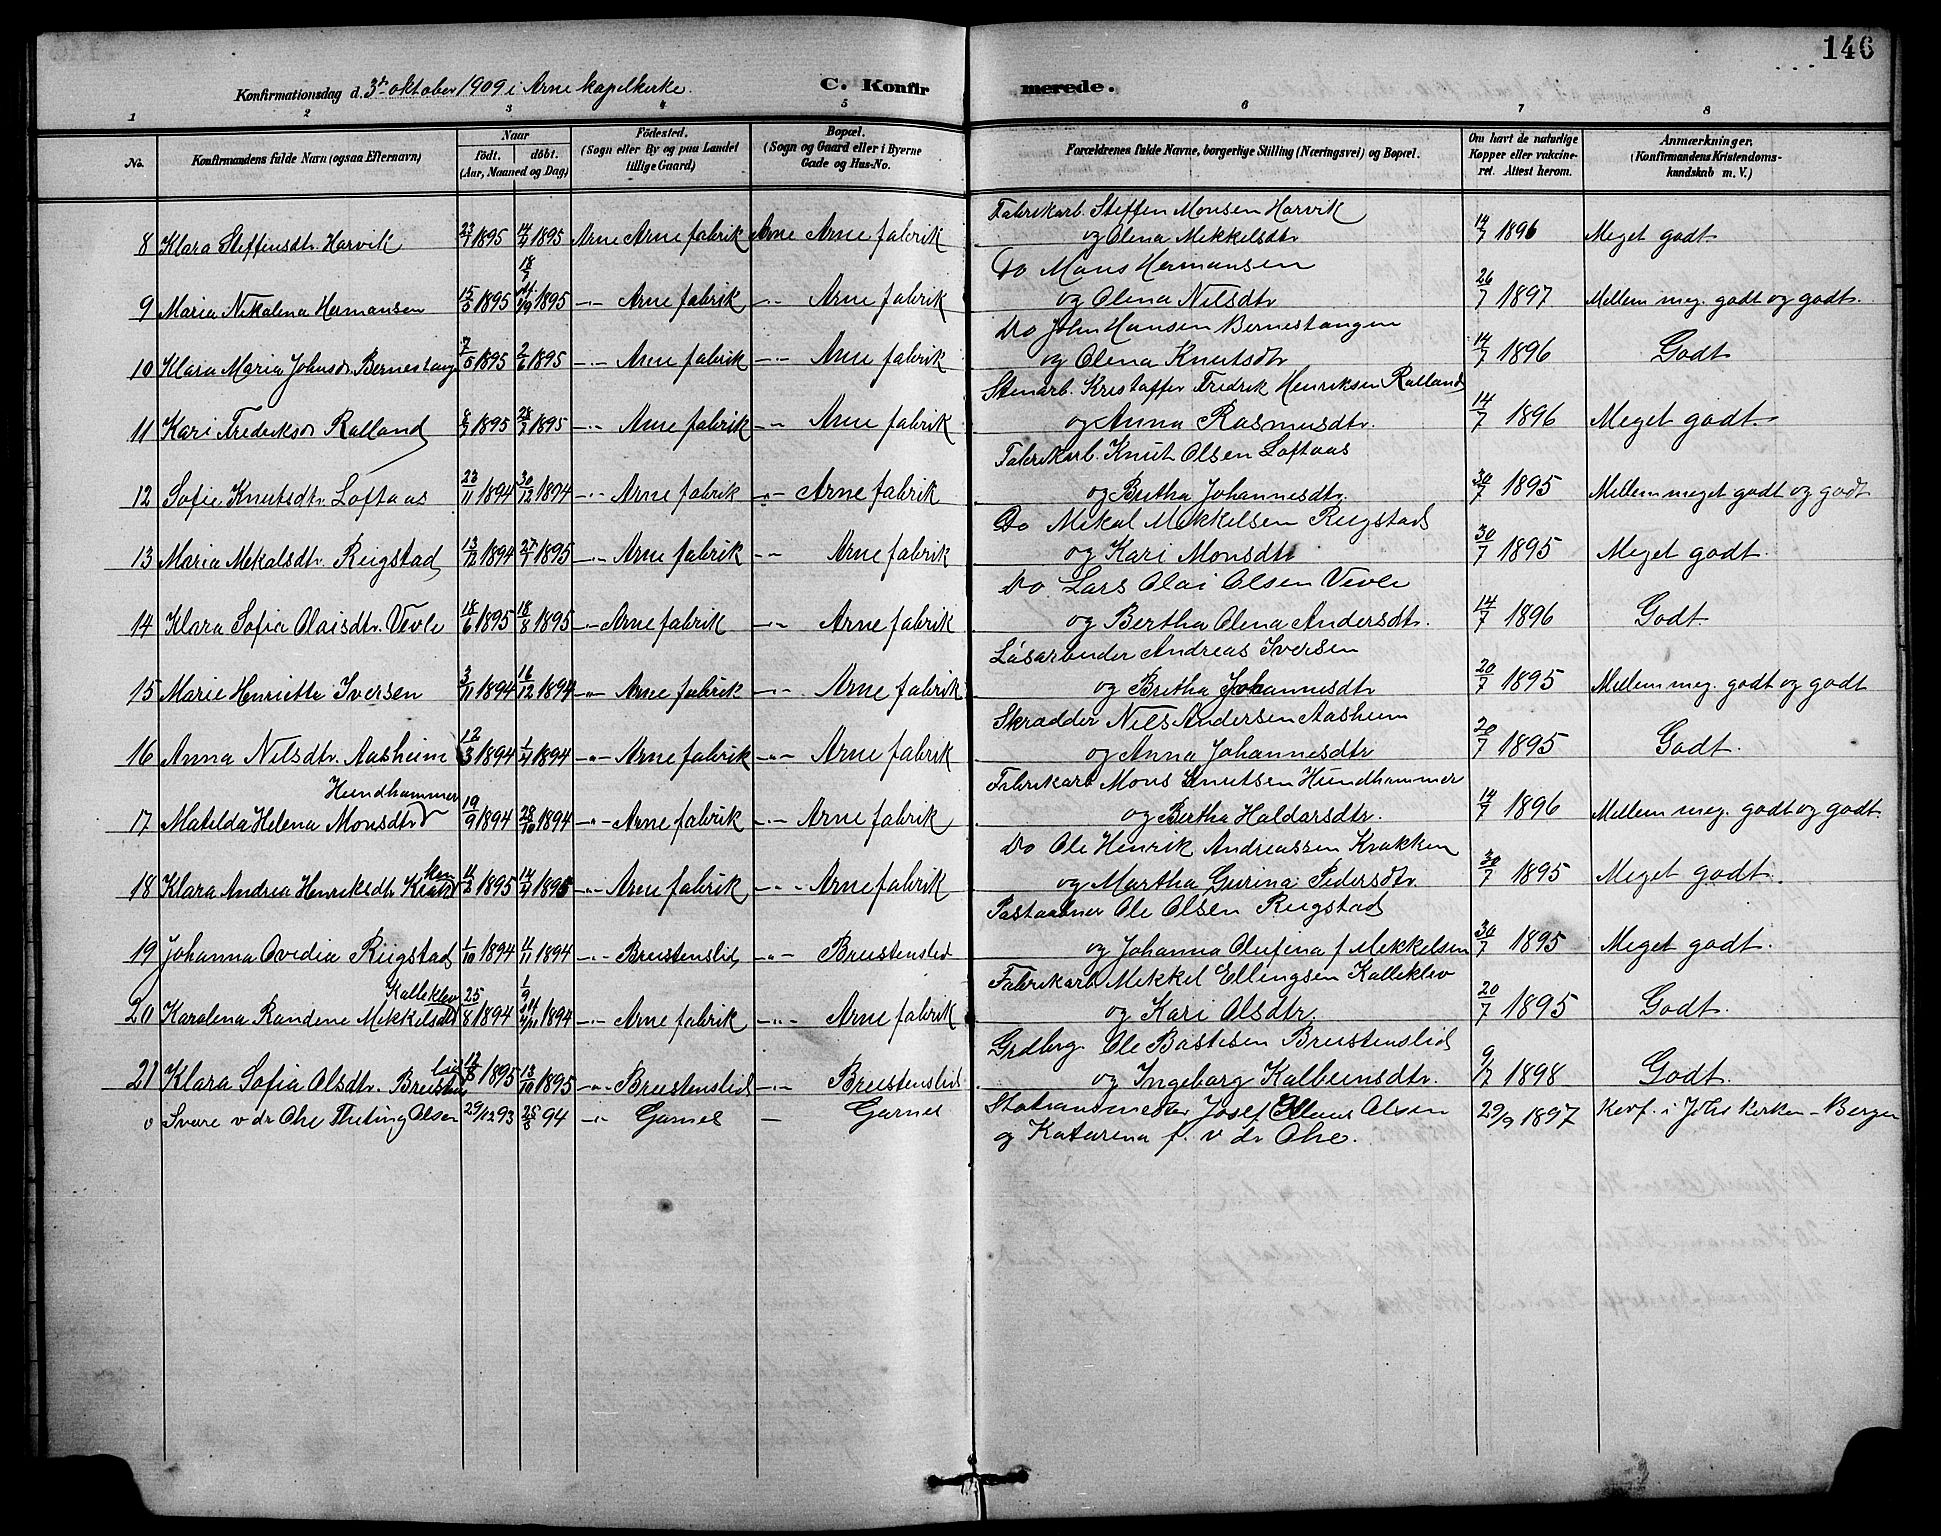 146
Konfirmationsdag d. 3die oktober 1909 i Arne kapelkirke. C. Konfirmerede.
1 2 3 4 5 6 7 8
No. Konfirmandens fulde Navn (ogsaa Efternavn) Naar født. døbt. (Aar, Maaned og Dag) Fødested. (Sogn eller By og paa Landet tillige Gaard) Bopæl. (Sogn og Gaard eller i Byerne Gade og Hus-No. Forældrenes fulde Navne, borgerlige Stilling (Næringsvei) og Bopæl. Om havt de naturlige Kopper eller vakcineret. Attest herom. Anmærkninger. (Konfirmandens Kristendomskundskab m. V.)
Fabrikarb. Steffen Monsen Harvik
8 Klara Steffensdtr. Harvik 23/7 1895 1895 Arne Arne fabrik Arne Arne fabrik og Olena Mekkelsdtr 14/7 1896 Meget godt
18/7
Do Mons Hermansen
9 Maria Nikolena Hermansen 15/5 1895 1895 -"- Arne fabrik -"- Arne fabrik og Olena Nilsdtr 26/7 1897 Mellem meg. godt og godt.
Do John Hansen Bernestangen
10 Klara Maria Johnsdr. Bernestang 7/5 1895 2/6 1895 -"- Arne fabrik -"- Arne fabrik og Olena Knutsdtr 14/7 1896 Godt
Stenarb. Kristoffer Fredrik Henriksen Ralland
11 Kari Fredriksdr Ralland 8/7 1895 28/7 1895 -"- Arne fabrik -"- Arne fabrik og Anna Rasmusdtr. 14/7 1896 Meget godt.
Fabrikarb. Knut Olsen Loftaas
12 Sofie Knutsdtr. Loftaas 23/11 1894 30/12 1894 -"- Arne fabrik -"- Arne fabrik og Bertha Johannesdtr. 30/7 1895 Mellem meget godt og godt
Do Mikal Mikkelsen Rugstad
13 Maria Mekalsdtr. Rugstad 13/12 1894 27/1 1895 -"- Arne fabrik -"- Arne fabrik og Kari Monsdtr 30/7 1895 Meget godt.
Do Lars Olai Olsen Vevle
14 Klara Sofia Olaisdtr. Vevle 18/6 1895 18/8 1895 -"- Arne fabrik -"- Arne fabrik og Bertha Olena Andersdtr. 14/7 1896 Godt.
Løsarbeider Andreas Iversen
15 Marie Henriette Iversen 3/11 1894 16/12 1894 -"- Arne fabrik -"- Arne fabrik og Britha Johannesdtr 20/7 1895 Mellem meg. godt og godt
Skrædder Nils Andersen Aasheim
16 Anna Nilsdtr. Aasheim 12/3 1894 1/4 1894 -"- Arne fabrik -"- Arne fabrik og Anna Johannesdtr 20/7 1895 Godt.
Hundhammer Fabrikarb Mons Knutsen Hundhammer
17 Matilda Helena Monsdtr 19/9 1894 28/10 1894 -"- Arne fabrik -"- Arne fabrik og Bertha Haldorsdtr. 14/7 1896 Mellem meg. godt og godt.
Do Ole Henrik Andreassen Krakken
18 Klara Andrea Henriksdtr Krakken 1895 14/4 1895 -"- Arne fabrik -"- Arne fabrik og Martha Gurina Pedersdtr. 30/7 1895 Meget godt.
Postaabner Ole Olsen Rugstad
19 Johanna Ovidia Rugstad 1/10 1894 1894 -"- Breistenslid -"- Breistenslid og Johanna Olufina f Mikkelsen 30/7 1895 Meget godt.
Kalleklev 1/9 Fabrikarb Mekkel Ellingsen Kalleklev
20 Karolena Randene Mekkelsdtr 25/8 1894 1894 -"- Arne fabrik -"- Arne fabrik og Kari Olsdtr 20/7 1895 Godt.
Grdbrg. Ole Bastisen Breistenslid
21 Klara Sofia Olsdtr. Breistenslid 1895 13/10 1895 -"- Breistenslid -"- Breistenslid og Ingeborg Kolbeinsdtr. 9/7 1898 Godt.
0 Svere v dr Ohe Theting Olsen 29/12 93 25/3 94 -"- Garnes - Garnes Stationsmester Josef Klaus Olsen 29/9 1897 Konf. i Johs kirken - Bergen
og Katarena f. v dr Ohe.